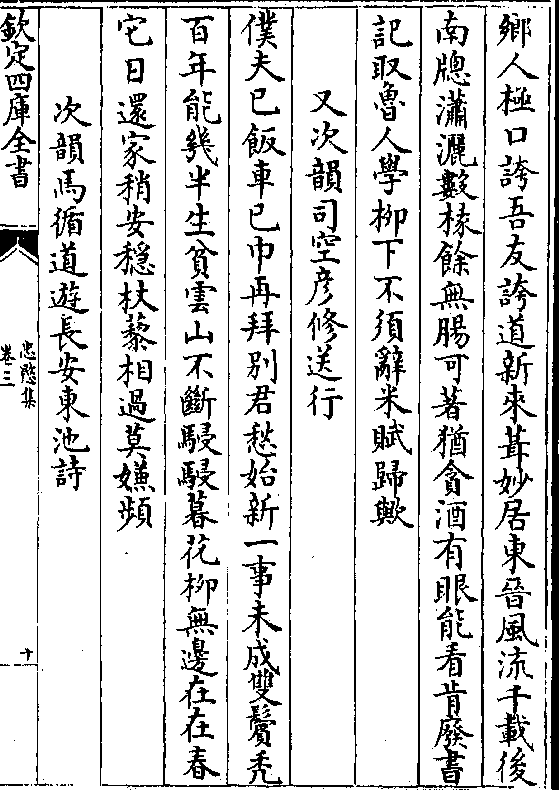 鄉人極口誇吾友誇道新來葺妙居東晉風流千載後
南牕瀟灑數椽餘無腸可著猶貪酒有眼能看肯廢書
記取魯人學柳下不須辭米賦歸歟
又次韻司空彦修送行
僕夫已飯車已巾再拜别君愁始新一事未成雙鬢秃
百年能幾半生貧雲山不斷駸駸暮花柳無邊在在春
它日還家稍安穩杖藜相過莫嫌頻
次韻馬循道遊長安東池詩
欽定四庫全書
忠愍集
卷三
十